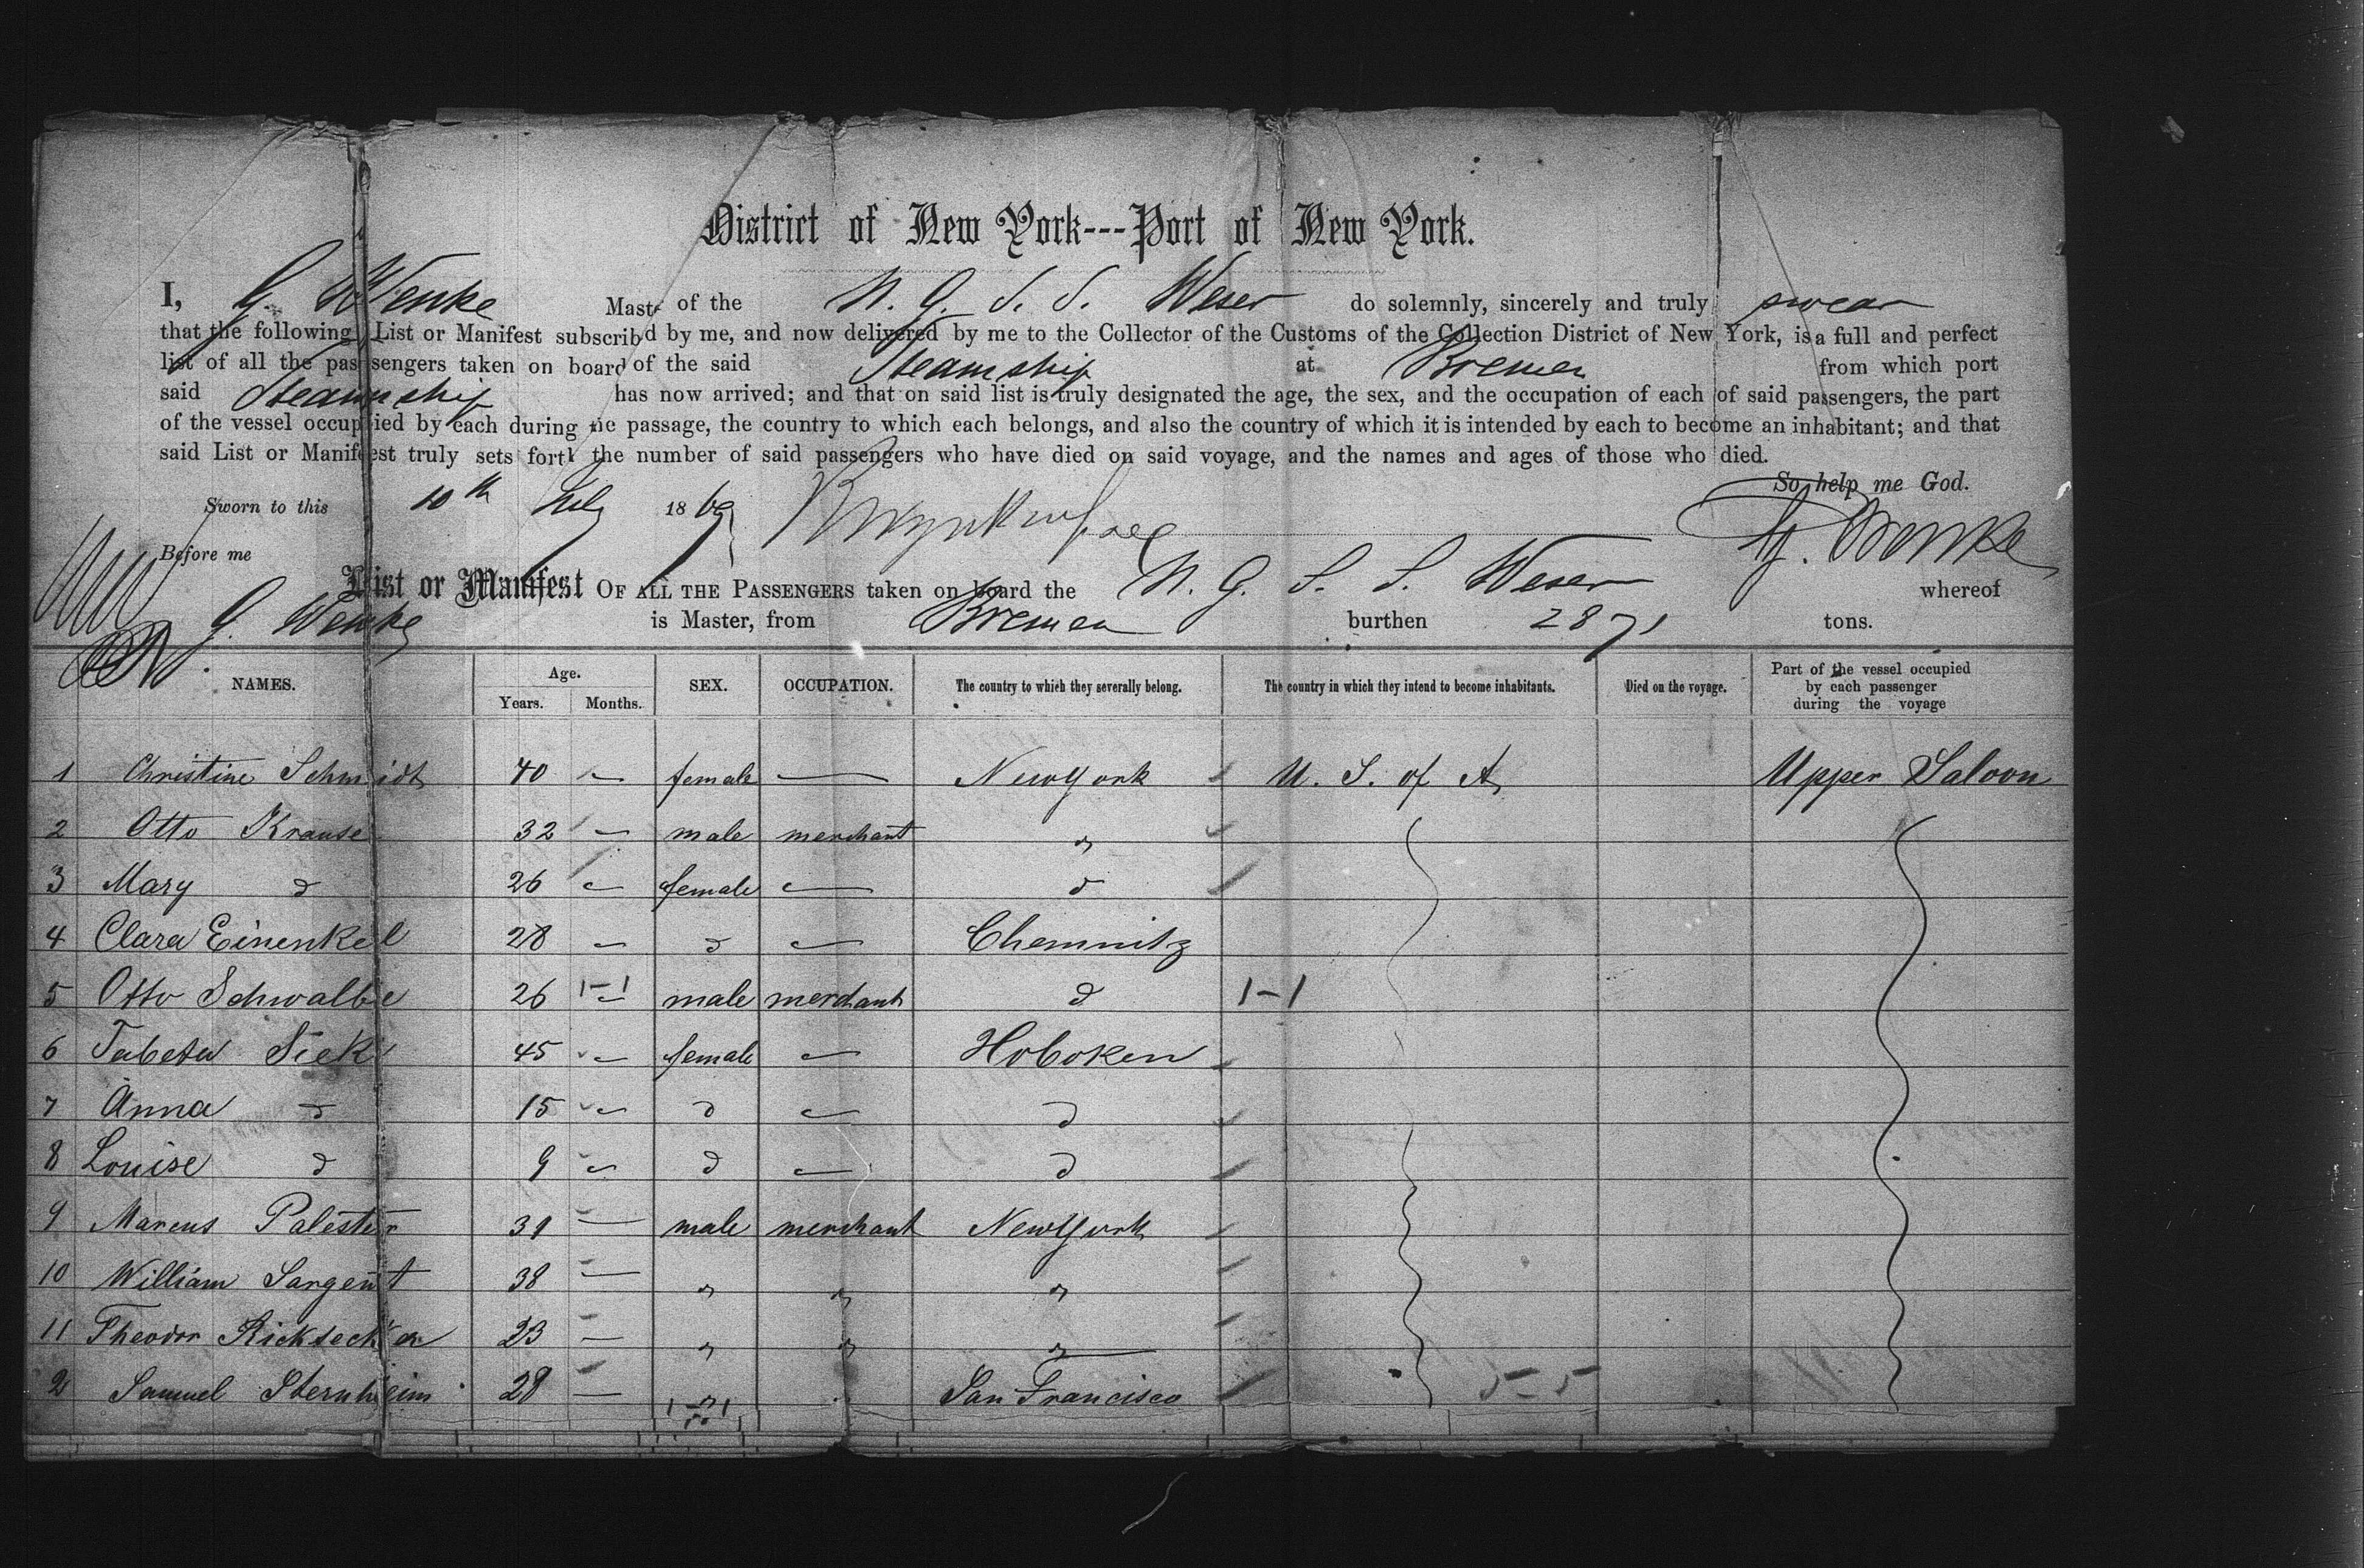 District of New York---Port of New York.
I, G. Wenke Mast of the N. G. S. S. Weser do solemnly, sincerely and truly swear
that the following List or Manifest subscrib'd by me, and now delivered by me to the Collector of the Customs of the Collection District of New York, is a full and perfect
list of all the passengers taken on board of the said Steamship at Bremen from which port
said Steamship has now arrived; and that on said list is truly designated the age, the sex, and the occupation of each of said passengers, the part
of the vessel occupied by each during the passage, the country to which each belongs, and also the country of which it is intended by each to become an inhabitant; and that
said List or Manifest truly sets forth the number of said passengers who have died on said voyage, and the names and ages of those who died.
So help me God.
Sworn to this 10th July 1869
G. Wenke
Before me
List or Manifest OF ALL THE PASSENGERS taken on board the N. G. S. S. Weser whereof
G. Wenke is Master, from Bremen burthen 2871 tons.
NAMES. Age. Years. Months. SEX. OCCUPATION. The country to which they severally belong. The country in which they intend to become inhabitants. Died on the voyage. Part of the vessel occupied by each passenger during the voyage
1 Christine Schmidt 40 — female — New York U. S. of A. Upper Saloon
2 Otto Krause 32 — male merchant "
3 Mary d 26 — female — d
4 Clara Einenkel 28 — d — Chemnitz
5 Otto Schwalbe 26 1-1 — male merchant d 1-1
6 Sick 45 — female — Hoboken
7 Anna d 15 — d — d
8 Louise d 9 — d — d
9 Marcus Palester 39 — male merchant New York
10 William Sargent 38 — " " "
11 Theodor Ricksecker 23 — " " "
2 Samuel Sternheim 28 — " San Francisco 5-5